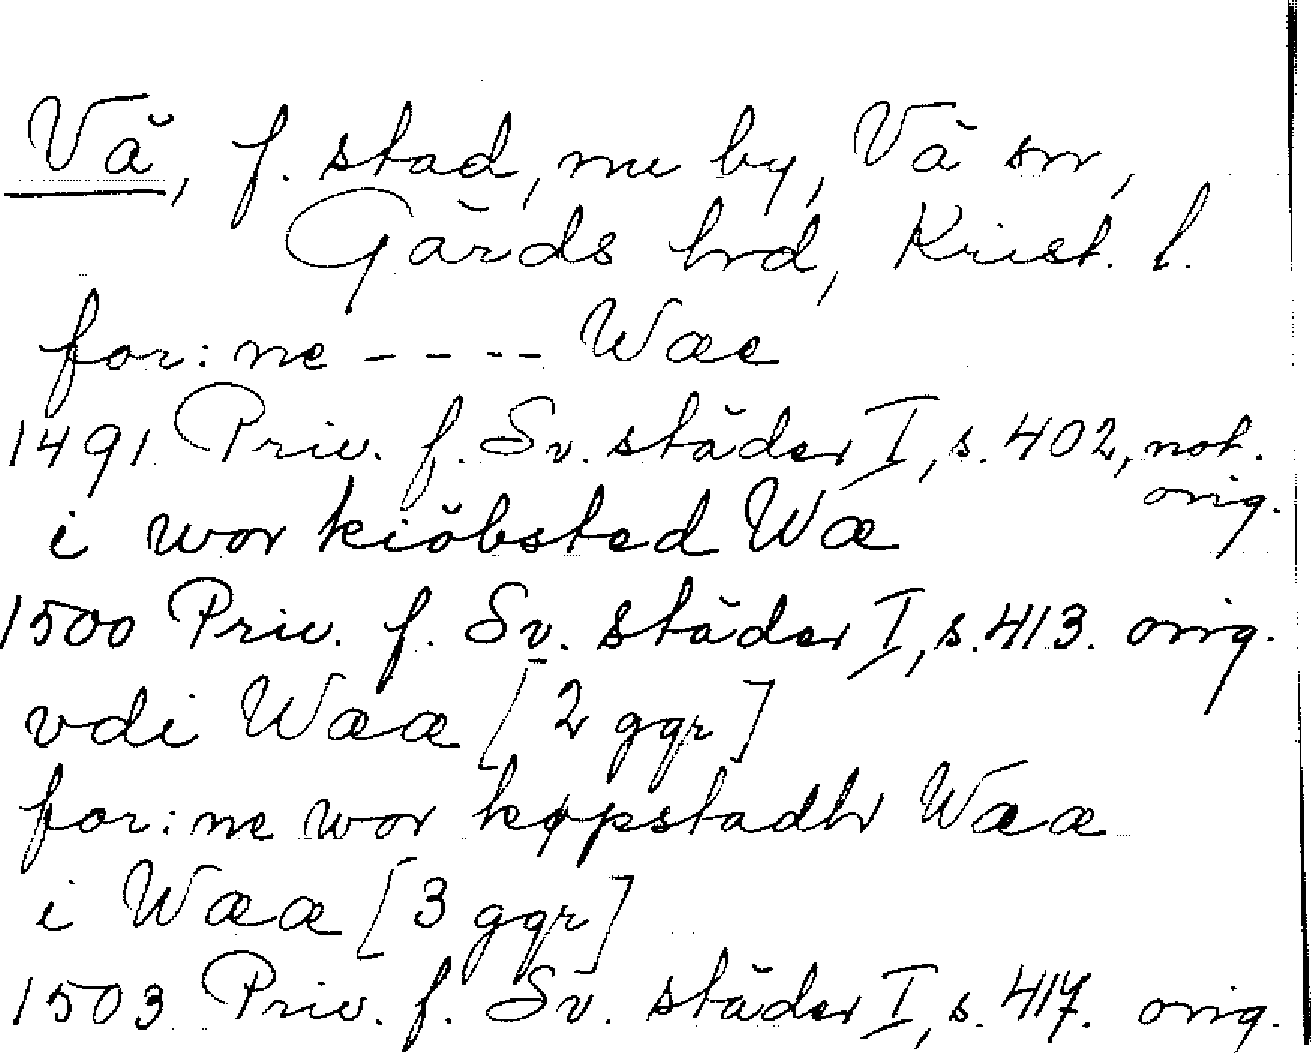 Vä, f. stad, nu by, Vä sn,
Gärds hrd, Krist. l.
for:ne - - - - Wæ
1491 Priv. f. Sv. städer I, s. 402, not. orig.
i wor kiöbsted Wæ
1500 Priv. f. Sv. städer I, s. 413. orig.
vdi Wææ [2 ggr]
for:ne wor køpstadh Wææ
i Wææ [3 ggr]
1503 Priv. f. Sv. städer I, s. 417. orig.